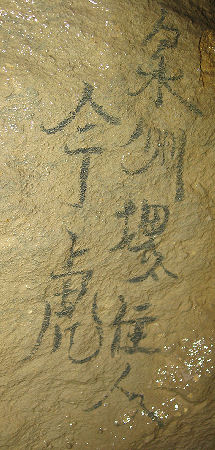 泉州堺住人
今虎